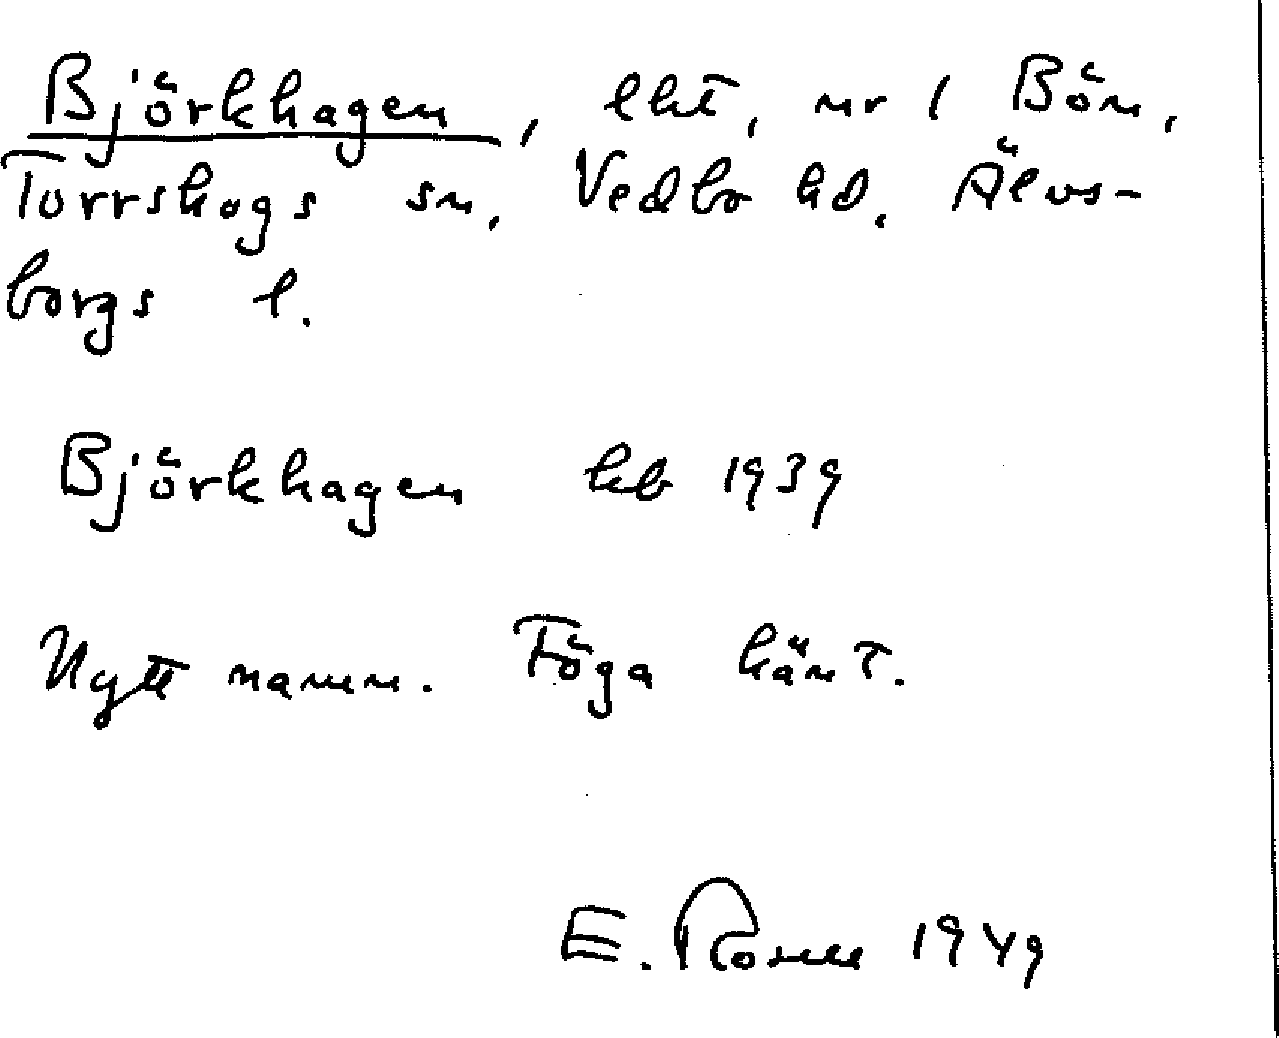 Björkhagen, lht, nr 1 Bön,
Torrskogs sn, Vedbo hd. Älvs-
borgs l.
Björkhagen hb 1939
Nytt namn. Föga känt.
E. 1949